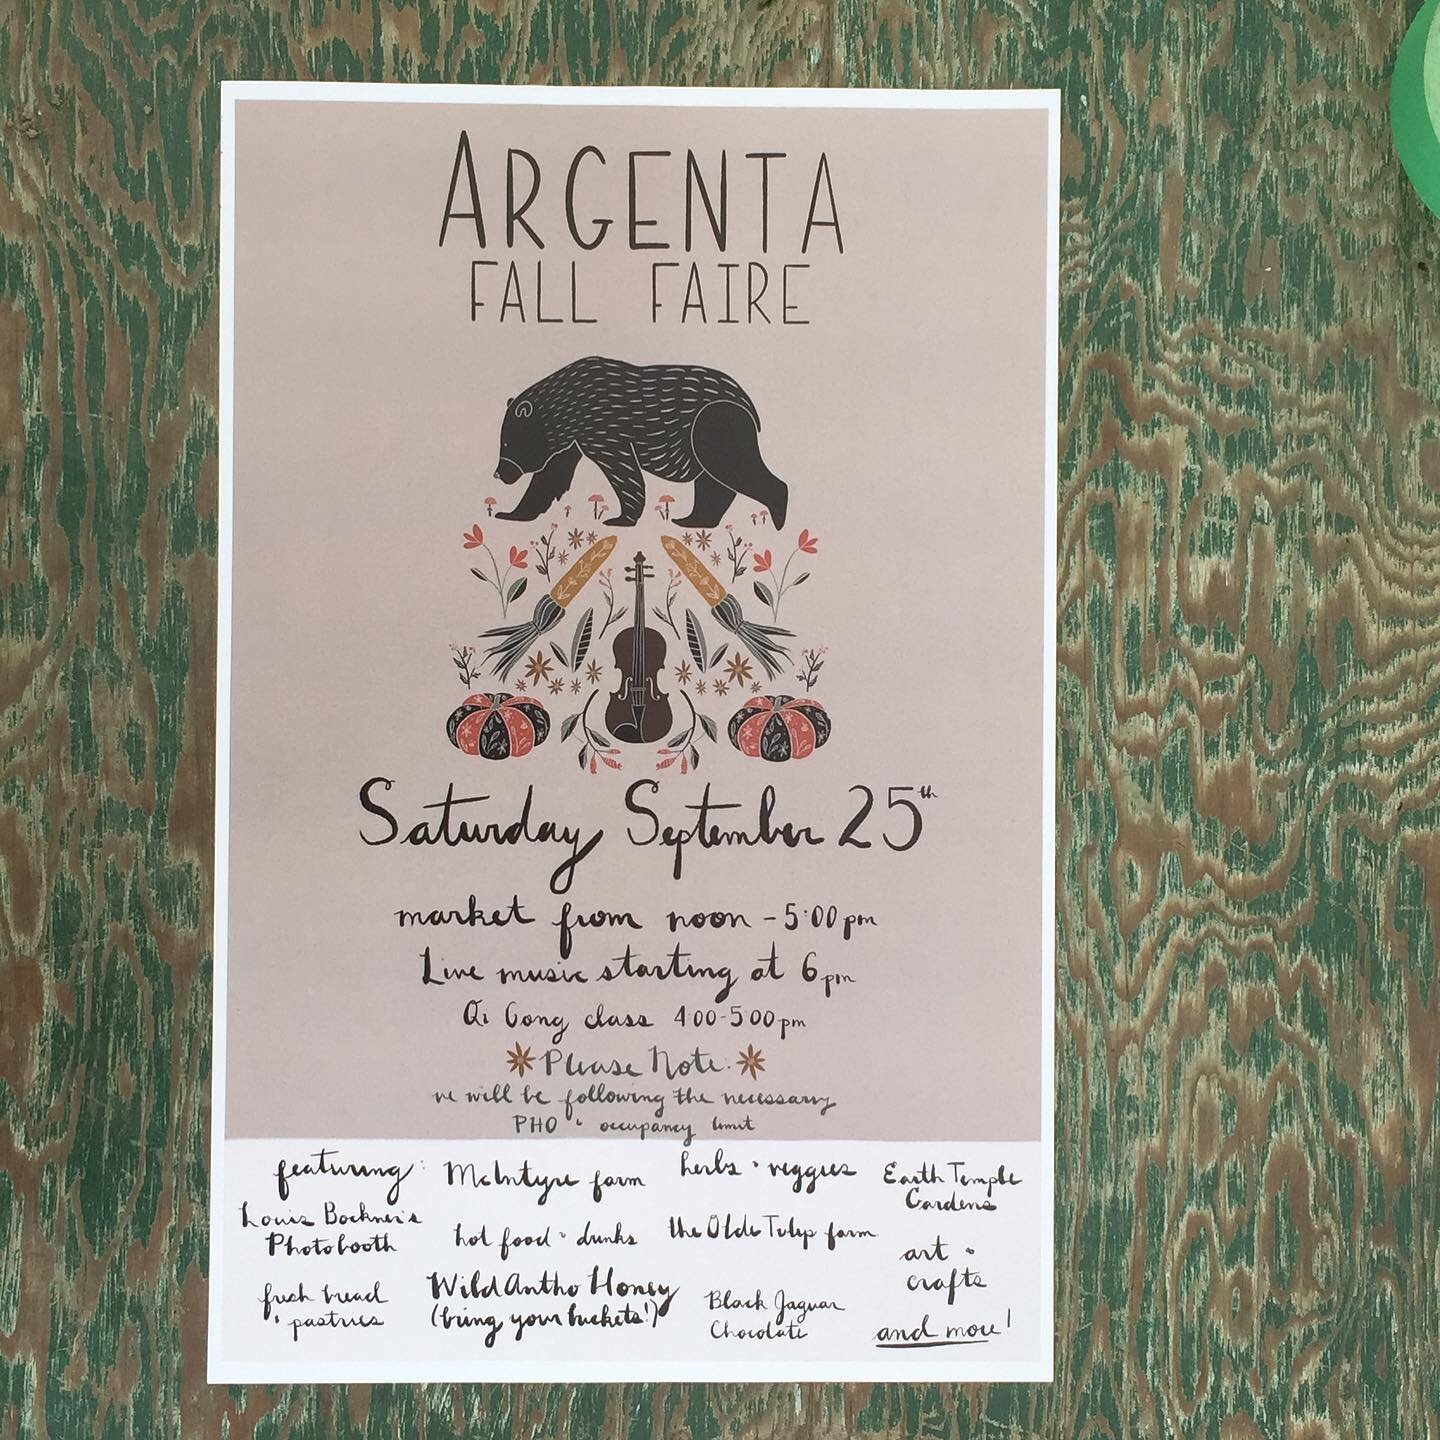 ARGENTA
FALL FAIRE
Saturday September 25th
market from noon - 5:00pm
Live music starting at 6pm
Qi Gong class 4:00-5:00pm
Please Note:
we will be following the necessary
PHO & occupancy limit
featuring:
McIntyre farm
herbs & veggies
Earth Temple
Gardens
Louis Bockner's
Photobooth
hot food & drinks
the Olde Tulip farm
art &
crafts
fresh bread
& pastries
Wild Antho Honey
(bring your buckets!)
Black Jaguar
Chocolate
and more!